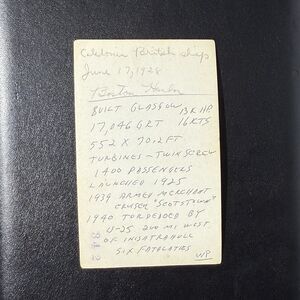 Caledonia British ship
June 17, 1928
Boston Harbor
BUILT GLASGOW 13K HP
17,046 GRT 16 KTS
552 X 70.2 FT
TURBINES - TWIN SCREW
1400 PASSENGERS
LAUNCHED 1925
1939 ARMED MERCHANT
CRUSER "SCOTSTOUN"
1940 TORPEDOED BY
U-25 200 MI WEST
OF INISHTRAHULL
SIX FATALATIES
WP